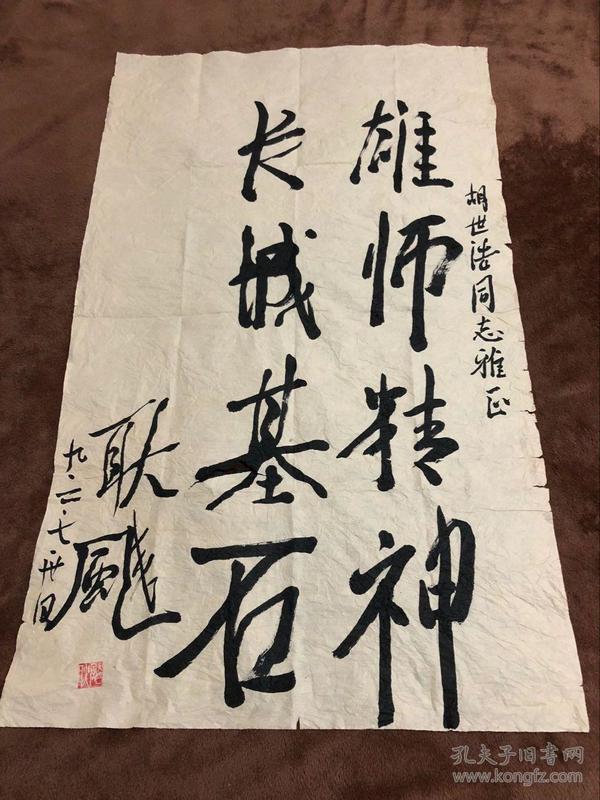 胡世浩同志雅正
雄师精神
长城基石
耿飚
九·二·七·卅日
孔夫子旧书网
www.kongfz.com